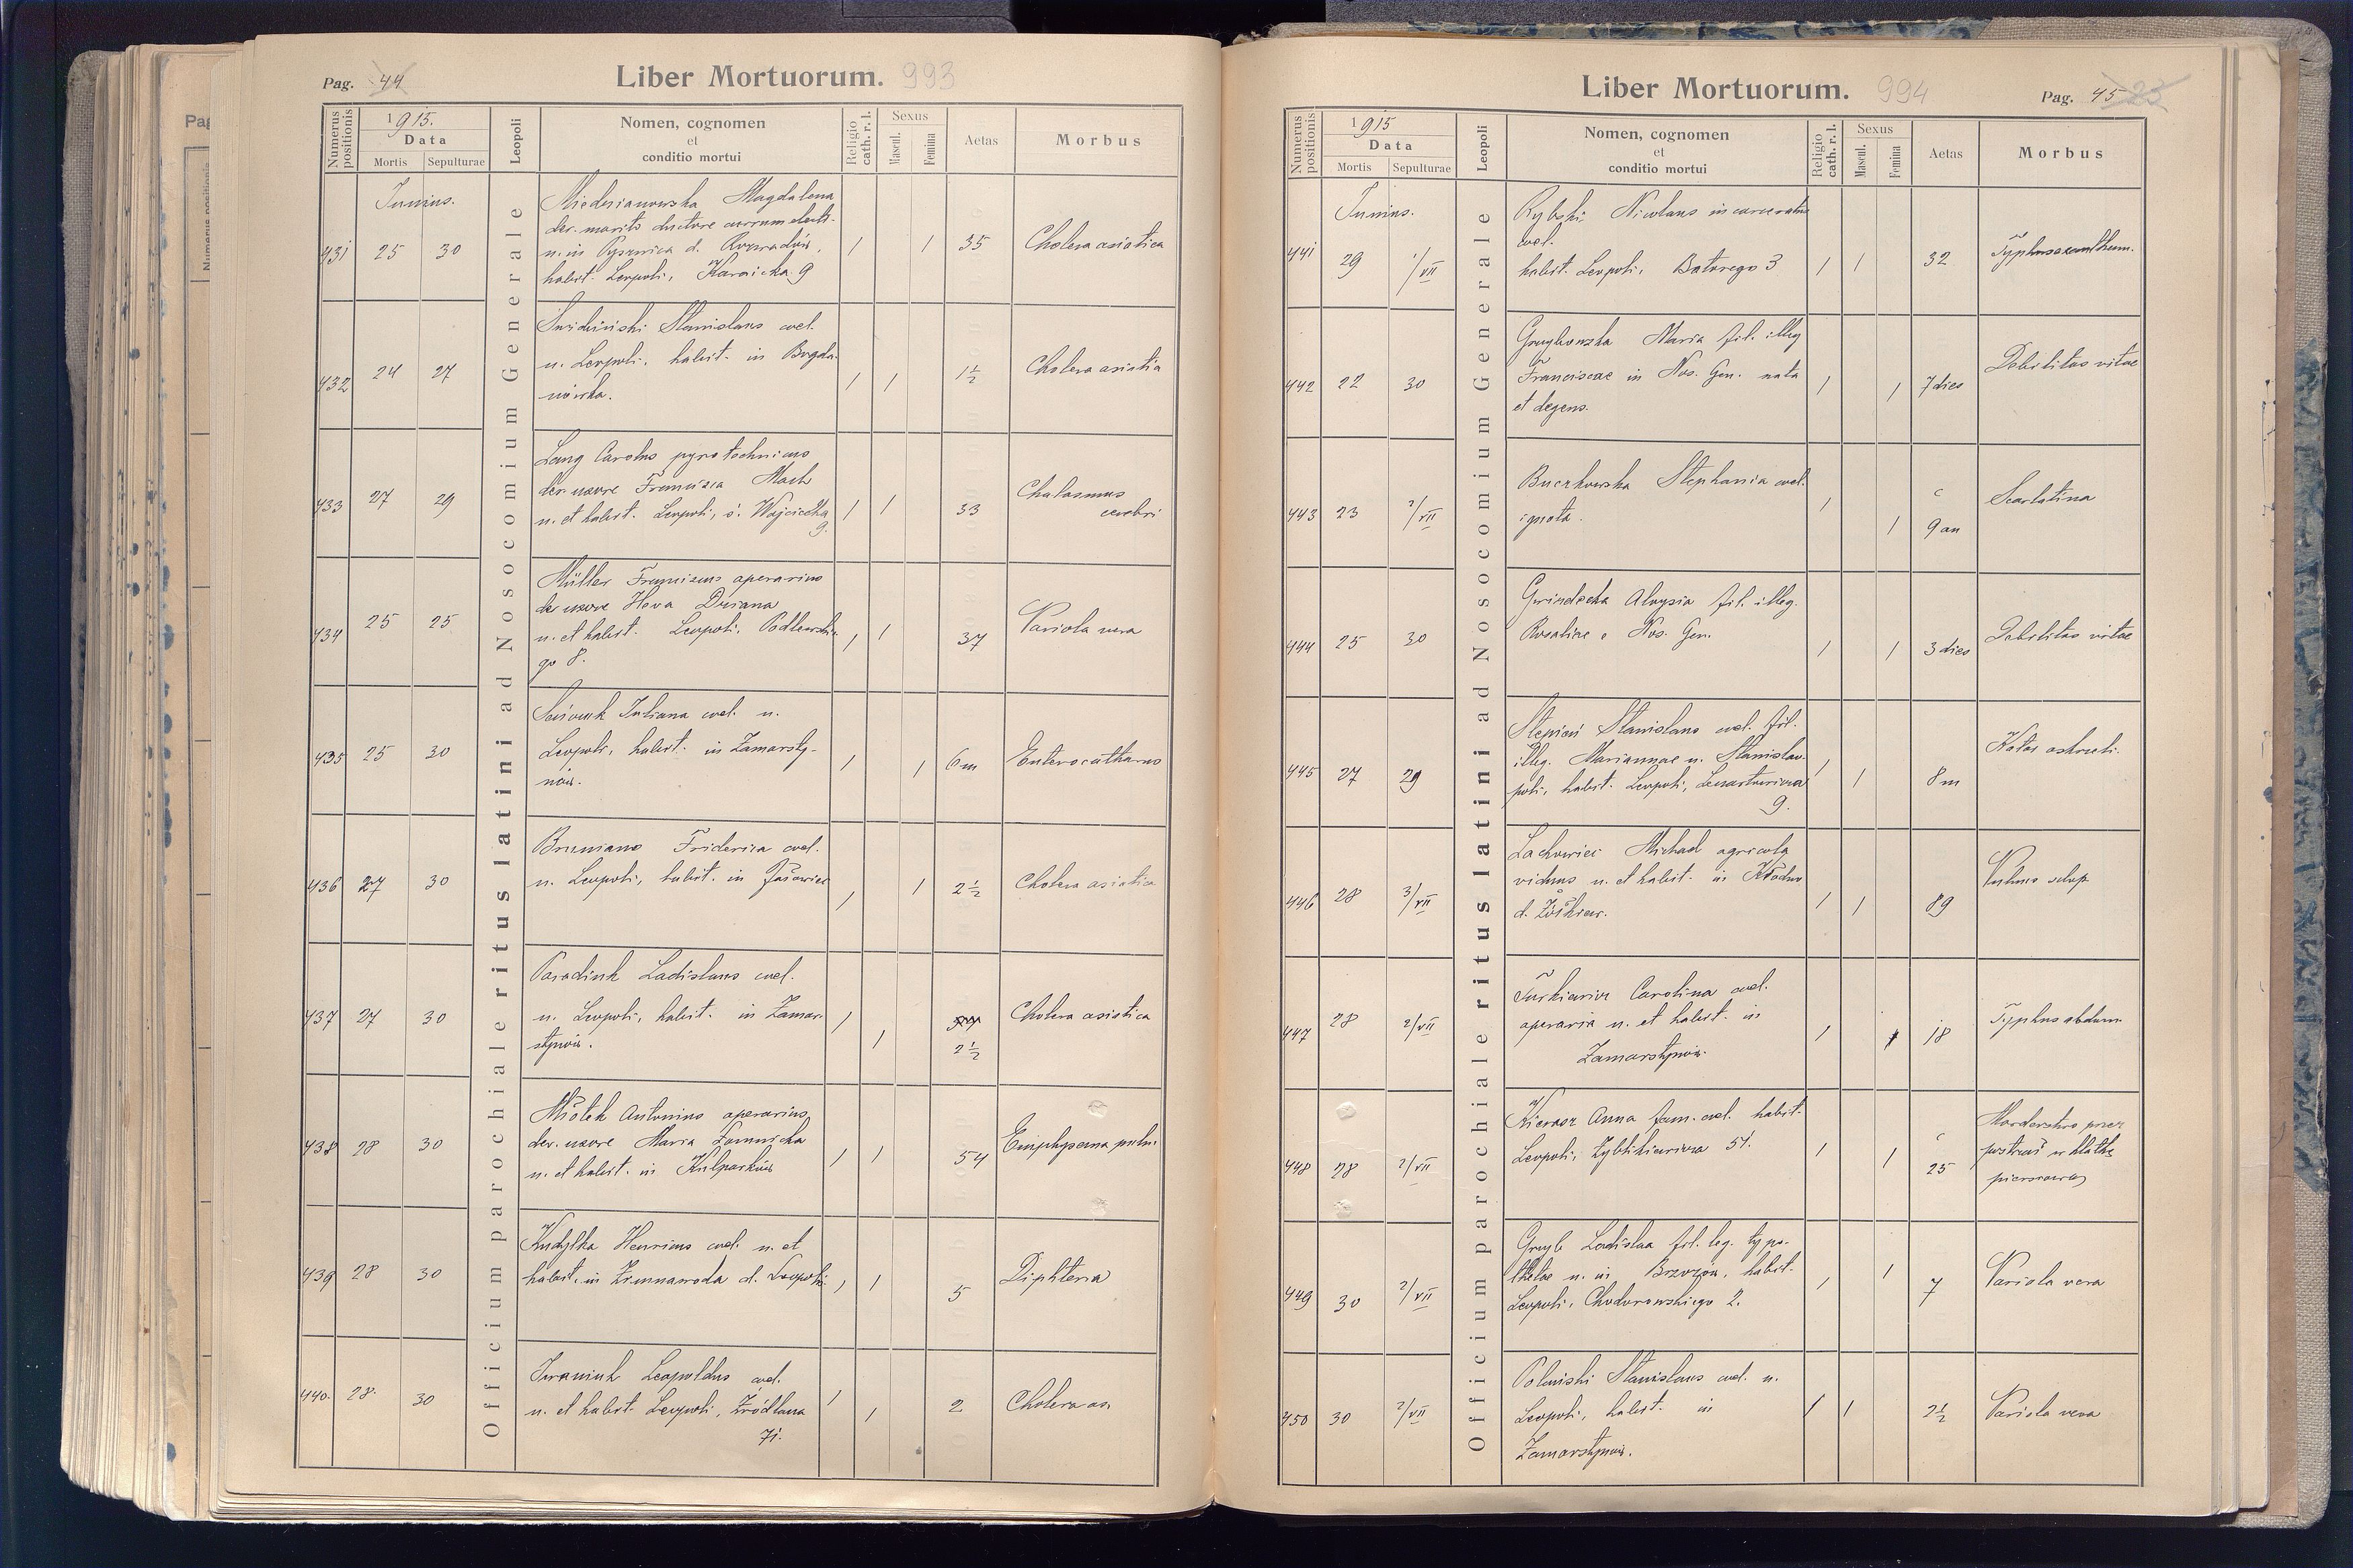 Pag. 44
Liber Mortuorum. 993
Numerus positionis
1915.
Data
Mortis
Sepulturae
Leopoli
Nomen, cognomen
et
conditio mortui
Religio
cath. r. l.
Sexus
Mascul.
Femina
Aetas
Morbus
Officium parochiale ritus latini ad Nosocomium Generale
Junius.
431 25 30
Magdalena
der. marito ductore currum electr.
n. in d.
habit. Leopoli, 9
/ / 35 Cholera asiatica
432 24 27
Stanislaus coel.
n. Leopoli, habit. in Bogda-
nówka.
/ / 1 1/2 Cholera asiatia
433 27 29
Lang Carolus pyrotechnicus
der. uxore Francisca Mach
n. et habit. Leopoli, ś. Wojciecha
9.
/ / 33
cerebri
434 25 25
Müller Franciscus operarius
der. uxore
n. et habit. Leopoli,
go 8.
/ / 37 Variola vera
435 25 30
Juliana coel. n.
Leopoli, habit. in Zamarsty-
nów.
/ / 6 m Enterocatharus
436 27 30
Friderica coel.
n. Leopoli, habit. in
/ / 2 1/2 Cholera asiatica
437 27 30
Ladislaus coel.
n. Leopoli, habit. in Zamar-
stynów.
/ / 2 1/2 Cholera asiatica
438 28 30
Młotek Antonius operarius
der. uxore Maria
n. et habit. in Kulparków
/ / 54 Emphysema pulm.
439 28 30
Kudyłka Henricus coel. n. et
habit. in Zimnawoda d. Leopoli
/ / 5 Diphteria
440. 28. 30
Leopoldus coel.
n. et habit. Leopoli, Źródlana
71.
/ / 2 Cholera as.
Liber Mortuorum. 994
Pag. 45 23
Numerus positionis
1915
Data
Mortis
Sepulturae
Leopoli
Nomen, cognomen
et
conditio mortui
Religio
cath. r. l.
Sexus
Mascul.
Femina
Aetas
Morbus
Officium parochiale ritus latini ad Nosocomium Generale
Junius.
441 29 1/VII
Rybski Nicolaus incarceratus
coel.
habit. Leopoli, Batorego 3
/ / 32 Typhus exanthem.
442 22 30
Grzybowska Maria fil. illeg
Franciscae in Nos. Gen. nata
et degens.
/ / 7 dies Debilitas vitae
443 23 2/VII
Buczkowska Stephania coel.
ignota.
/ / c 9 an Scarlatina
444 25 30
Aloysia fil. illeg.
Rosaliae e Nos. Gen.
/ / 3 dies Debilitas vitae
445 27 29
Stepień Stanislaus coel. fil.
illeg. Mariannae n. Stanislao-
poli, habit. Leopoli, Lenartowicza
9.
/ / 8 m
446 28 3/VII
Lachowicz Michael agricola
viduus n. et habit. in Kłodno
d. Żółkiew.
/ / 89 Vulnus sclop.
447 28 2/VII
Carolina coel.
operaria n. et habit. in
Zamarstynów.
/ / 18 Typhus abdom.
448 28 2/VII
Anna fam. coel. habit.
Leopoli, Zyblikiewicza 51.
/ / c 25 Morderstwo przez
postrzał w klatkę
piersiową
449 30 2/VII
Grzyb Ladislaa fil. leg. typo-
thetae n. in Brzozów, habit.
Leopoli, Chodorowskiego 2.
/ / 7 Variola vera
450 30 2/VII
Stanislaus coel. n.
Leopoli, habit. in
Zamarstynów.
/ / 2 1/2 Variola vera